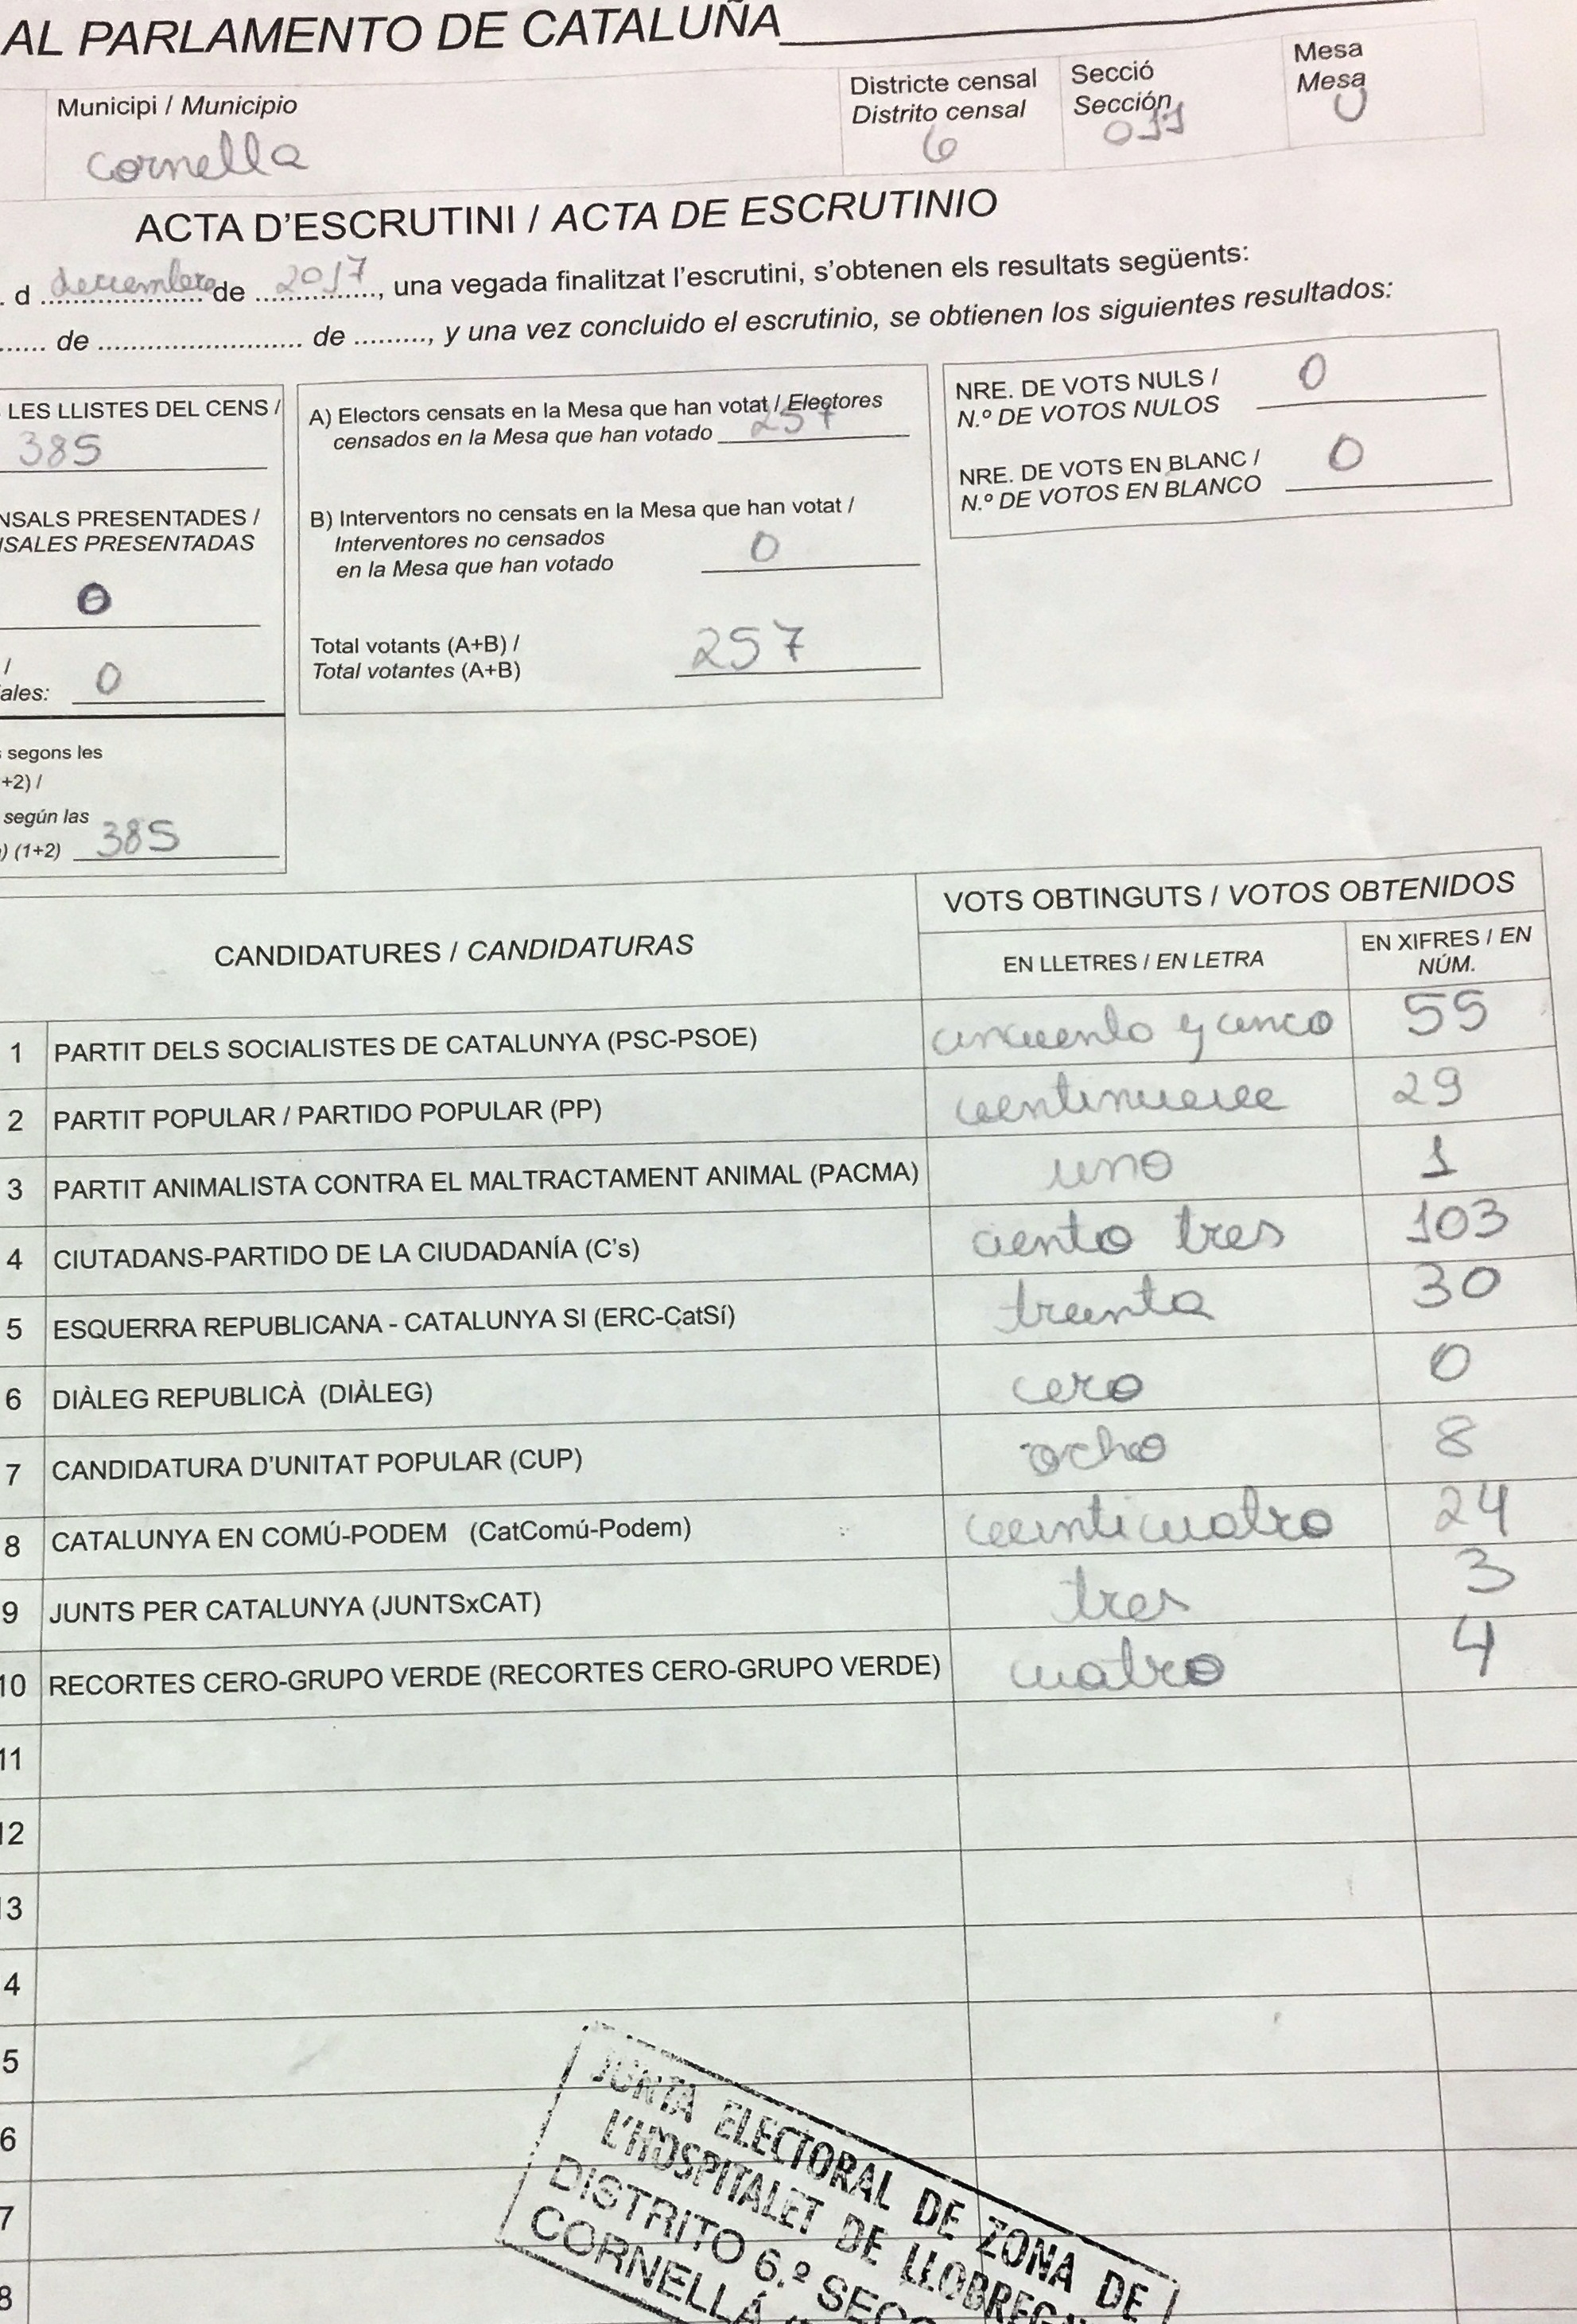 AL PARLAMENTO DE CATALUÑA
Municipi / Municipio
cornella
Districte censal
Distrito censal
6
Secció
Sección
011
Mesa
Mesa
U
ACTA D'ESCRUTINI / ACTA DE ESCRUTINIO
. d decembre de 2017, una vegada finalitzat l'escrutini, s'obtenen els resultats següents:
...... de .......................... de ........., y una vez concluido el escrutinio, se obtienen los siguientes resultados:
LES LLISTES DEL CENS /
385
NSALS PRESENTADES /
SALES PRESENTADAS
0
/
ales: 0
segons les
+2) /
según las
) (1+2) 385
A) Electors censats en la Mesa que han votat / Electores
censados en la Mesa que han votado 257
B) Interventors no censats en la Mesa que han votat /
Interventores no censados
en la Mesa que han votado 0
Total votants (A+B) /
Total votantes (A+B) 257
NRE. DE VOTS NULS /
N.º DE VOTOS NULOS 0
NRE. DE VOTS EN BLANC /
N.º DE VOTOS EN BLANCO 0
CANDIDATURES / CANDIDATURAS
VOTS OBTINGUTS / VOTOS OBTENIDOS
EN LLETRES / EN LETRA
EN XIFRES / EN
NÚM.
1 PARTIT DELS SOCIALISTES DE CATALUNYA (PSC-PSOE) cincuenta y cinco 55
2 PARTIT POPULAR / PARTIDO POPULAR (PP) veentinueve 29
3 PARTIT ANIMALISTA CONTRA EL MALTRACTAMENT ANIMAL (PACMA) uno 1
4 CIUTADANS-PARTIDO DE LA CIUDADANÍA (C's) ciento tres 103
5 ESQUERRA REPUBLICANA - CATALUNYA SI (ERC-CatSí) treinta 30
6 DIÀLEG REPUBLICÀ (DIÀLEG) cero 0
7 CANDIDATURA D'UNITAT POPULAR (CUP) ocho 8
8 CATALUNYA EN COMÚ-PODEM (CatComú-Podem) veinticuatro 24
9 JUNTS PER CATALUNYA (JUNTSxCAT) tres 3
10 RECORTES CERO-GRUPO VERDE (RECORTES CERO-GRUPO VERDE) cuatro 4
11
12
13
4
5
6
7
8
JUNTA ELECTORAL DE ZONA DE
L'HOSPITALET DE LLOBREGA
DISTRITO 6.º SECC
CORNELLÁ